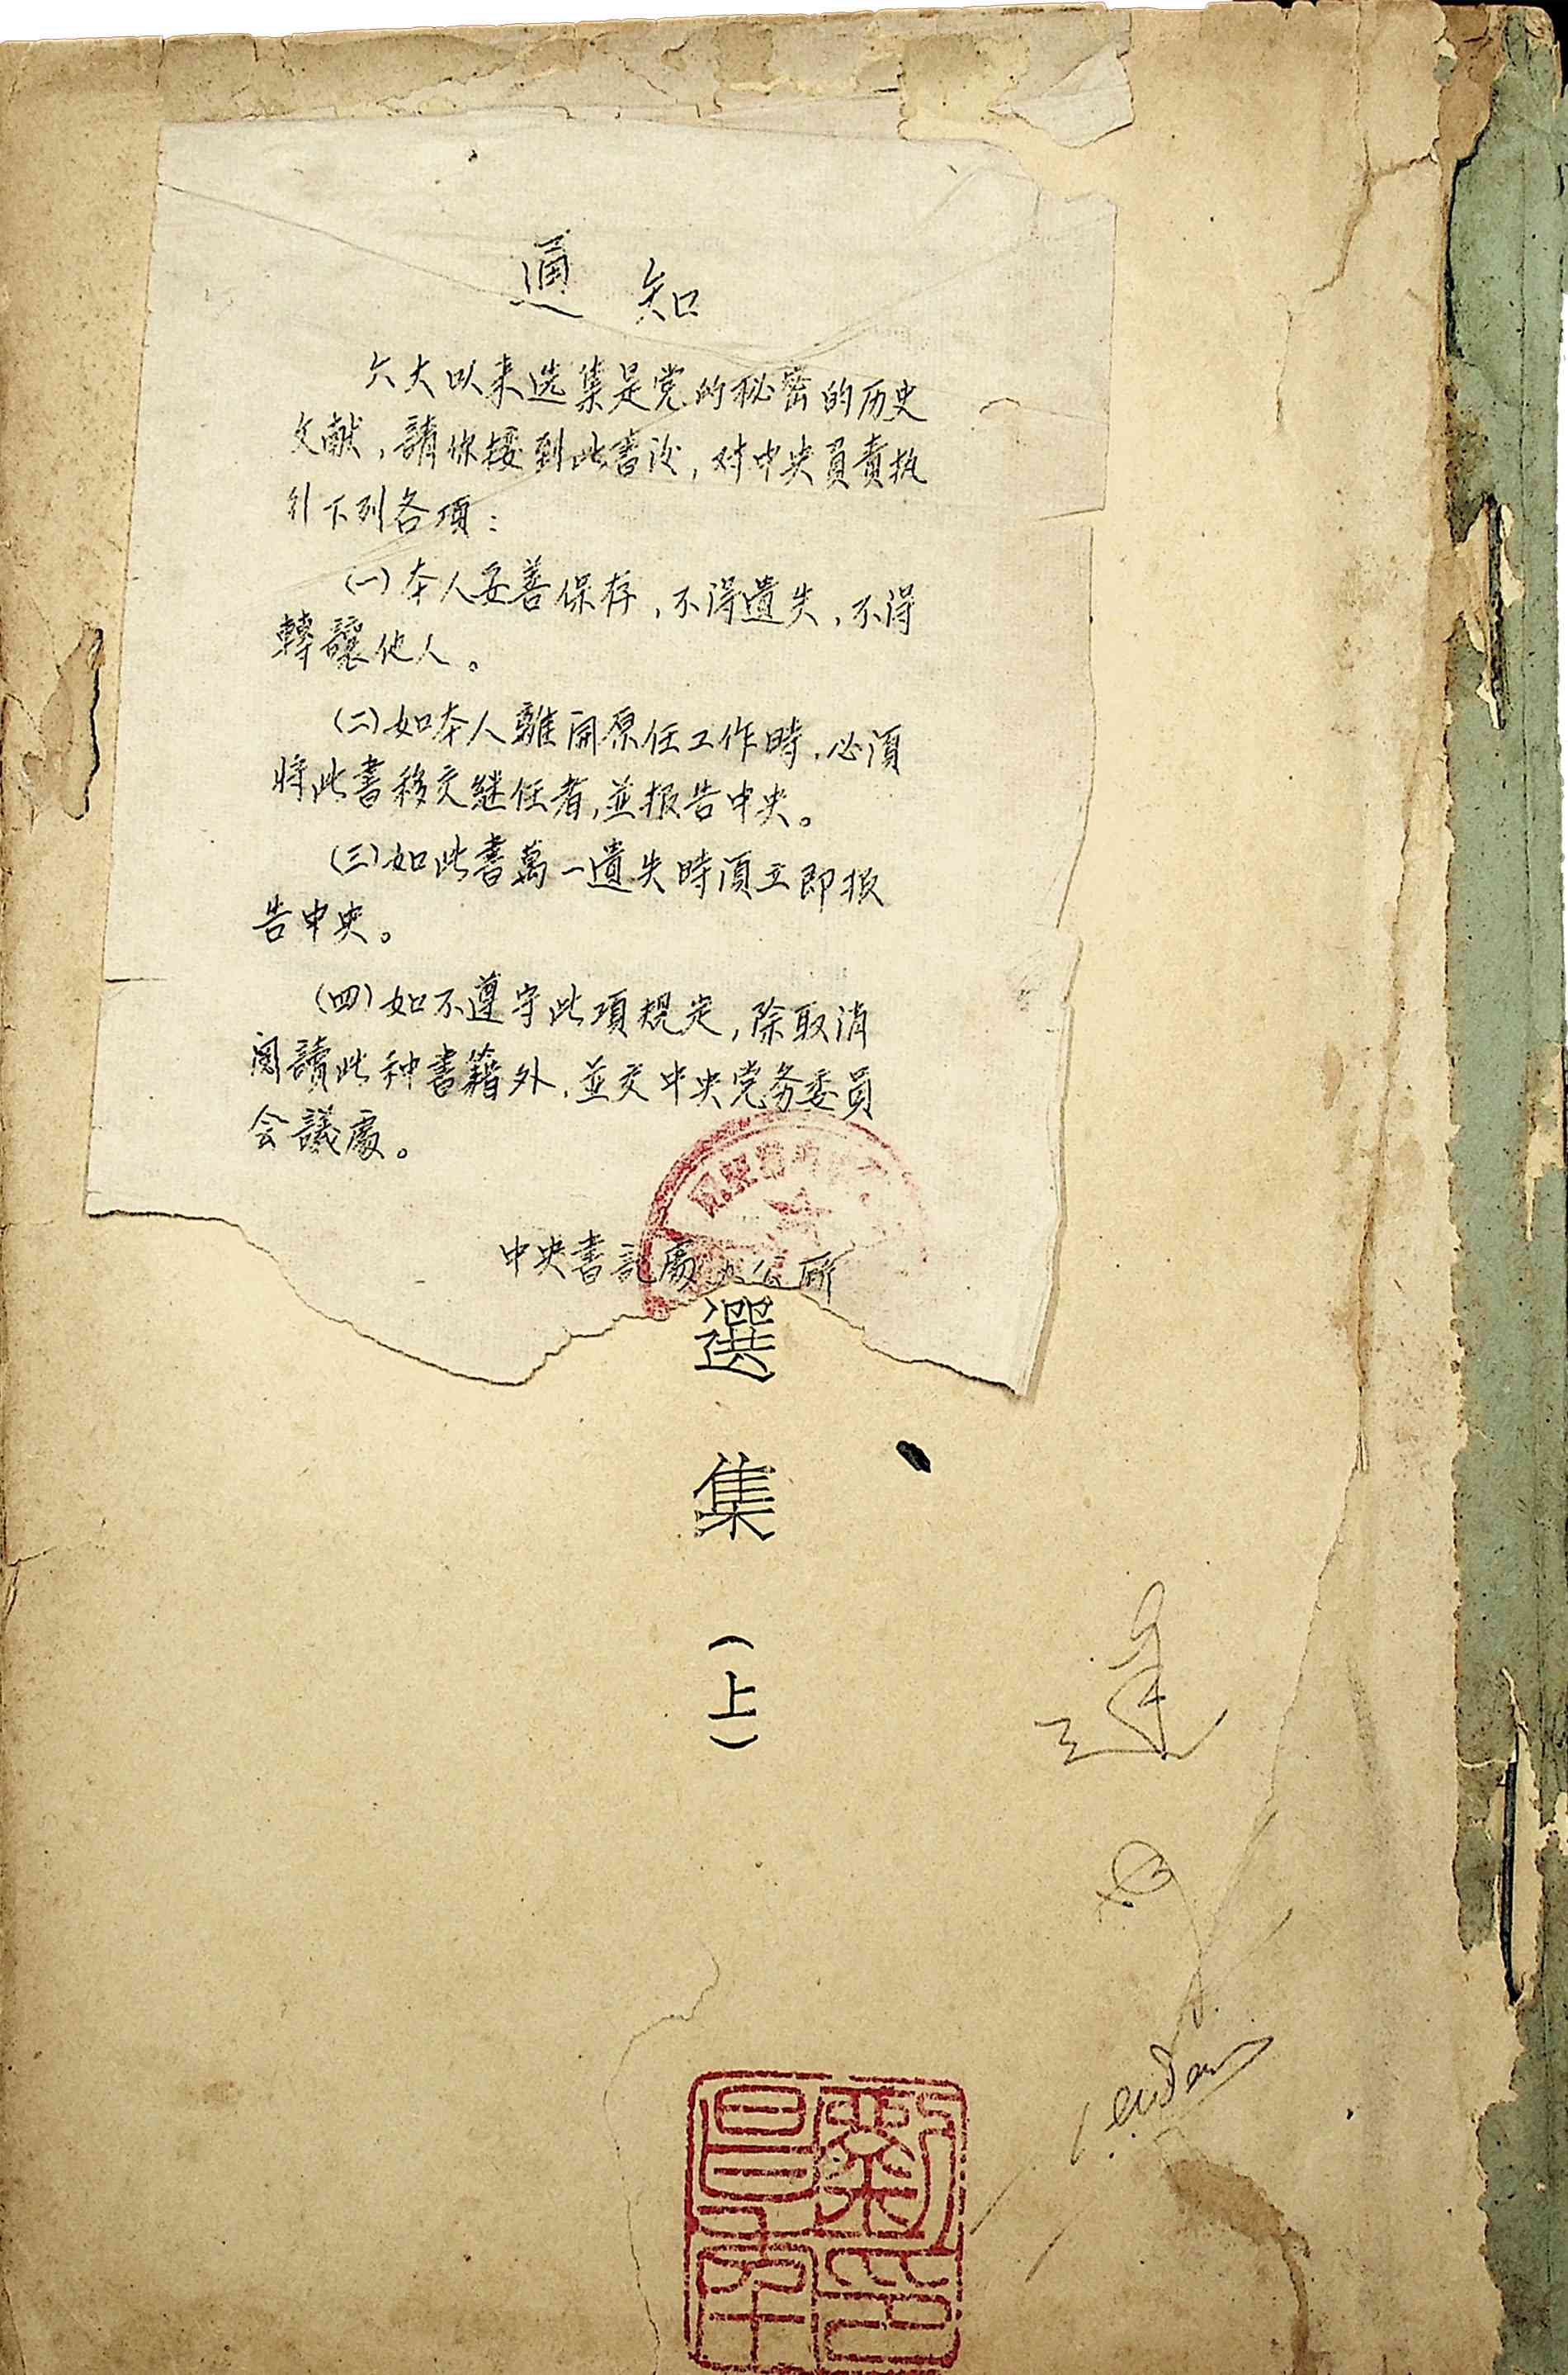 通知
六大以来选集是党的秘密的历史
文献，請你接到此書后，对中央負責执
行下列各項：
(一)本人妥善保存，不得遺失，不得
轉讓他人。
(二)如本人離開原任工作時，必須
将此書移交継任者，並报告中央。
(三)如此書萬一遺失時須立即报
告中央。
(四)如不遵守此項規定，除取消
閱讀此种書籍外，並交中央党务委員
会議處。
中央書記處办公厅
選集(上)